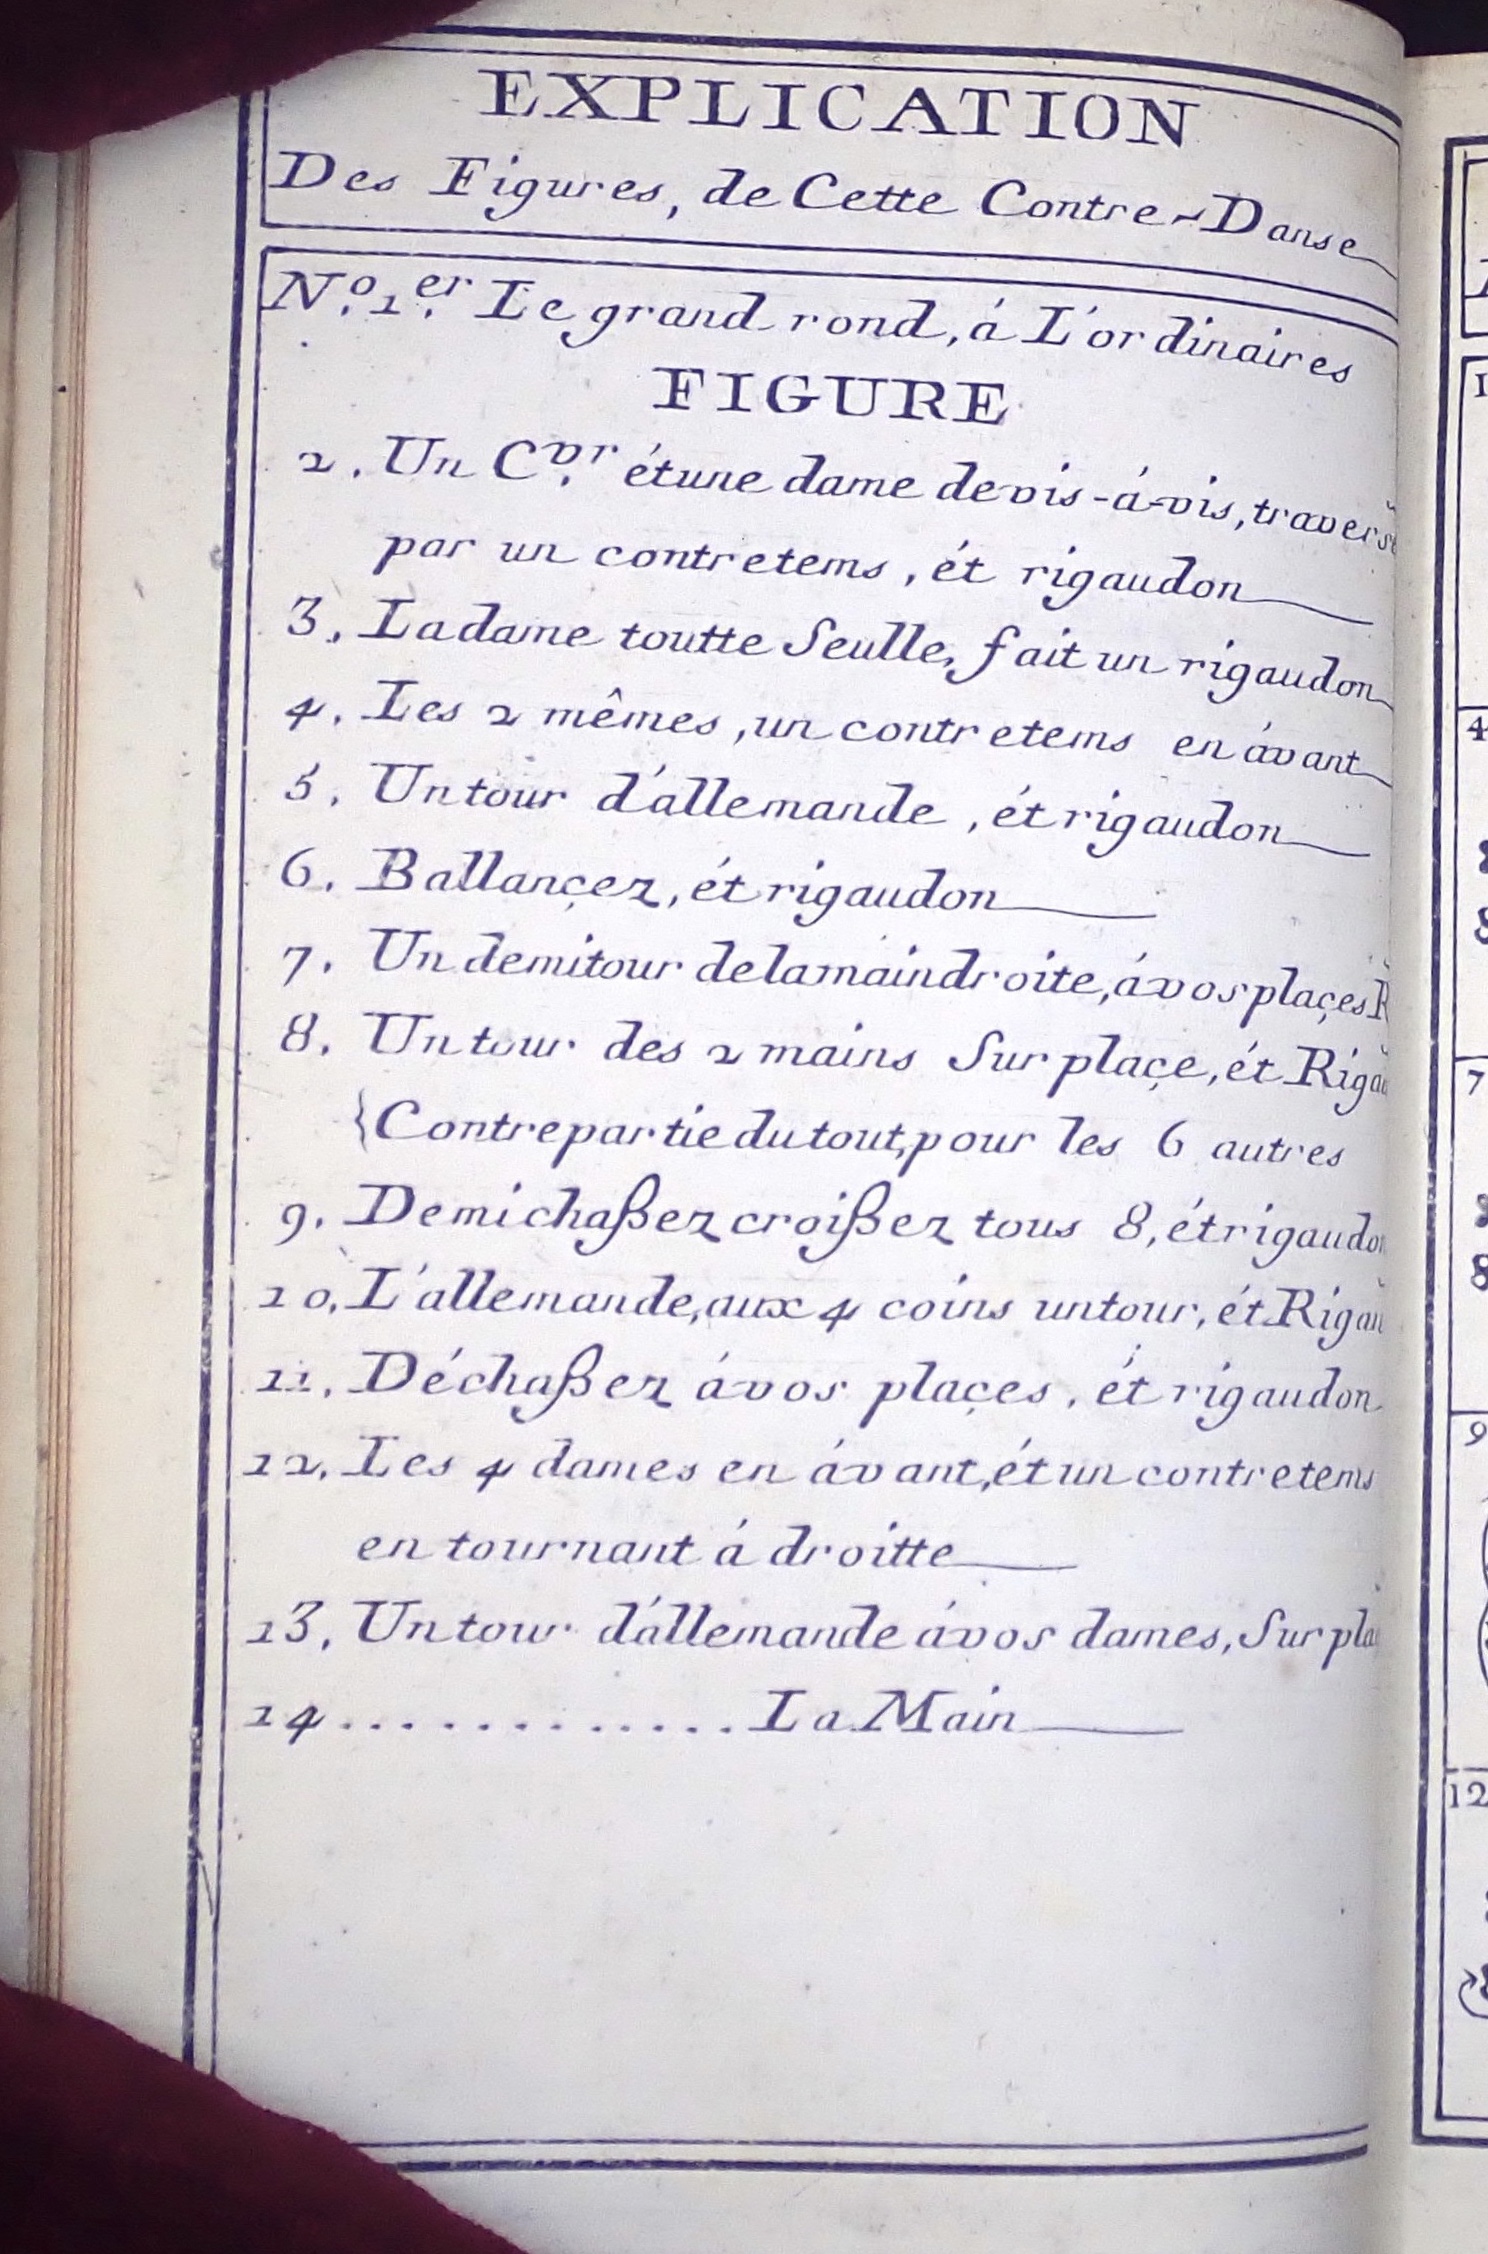 EXPLICATION
Des Figures, de Cette Contre-Danse
N.º 1.er Le grand rond, á L'ordinaires
FIGURE
2. Un C.vr ét une dame de vis-á-vis,
par un contretems, ét rigaudon
3. La dame toutte Seulle, fait un rigaudon
4. Les 2 mêmes, un contretems en ávant
5. Un tour d'allemande, ét rigaudon
6. Ballançez, ét rigaudon
7. Un demi tour de la main droite, á vos plaçes
8. Un tour des 2 mains Sur plaçe, ét
{Contrepartie du tout, pour les 6 autres
9. Demi chaßez croißez tous 8, ét rigaudon
10. L'allemande, aux 4 coins un tour, ét
11. Déchaßez á vos plaçes, ét rigaudon
12. Les 4 dames en ávant, ét un contretems
en tournant á droitte
13. Un tour d'allemande á vos dames, Sur
14............. La Main
1
4
8
7
8
9
12